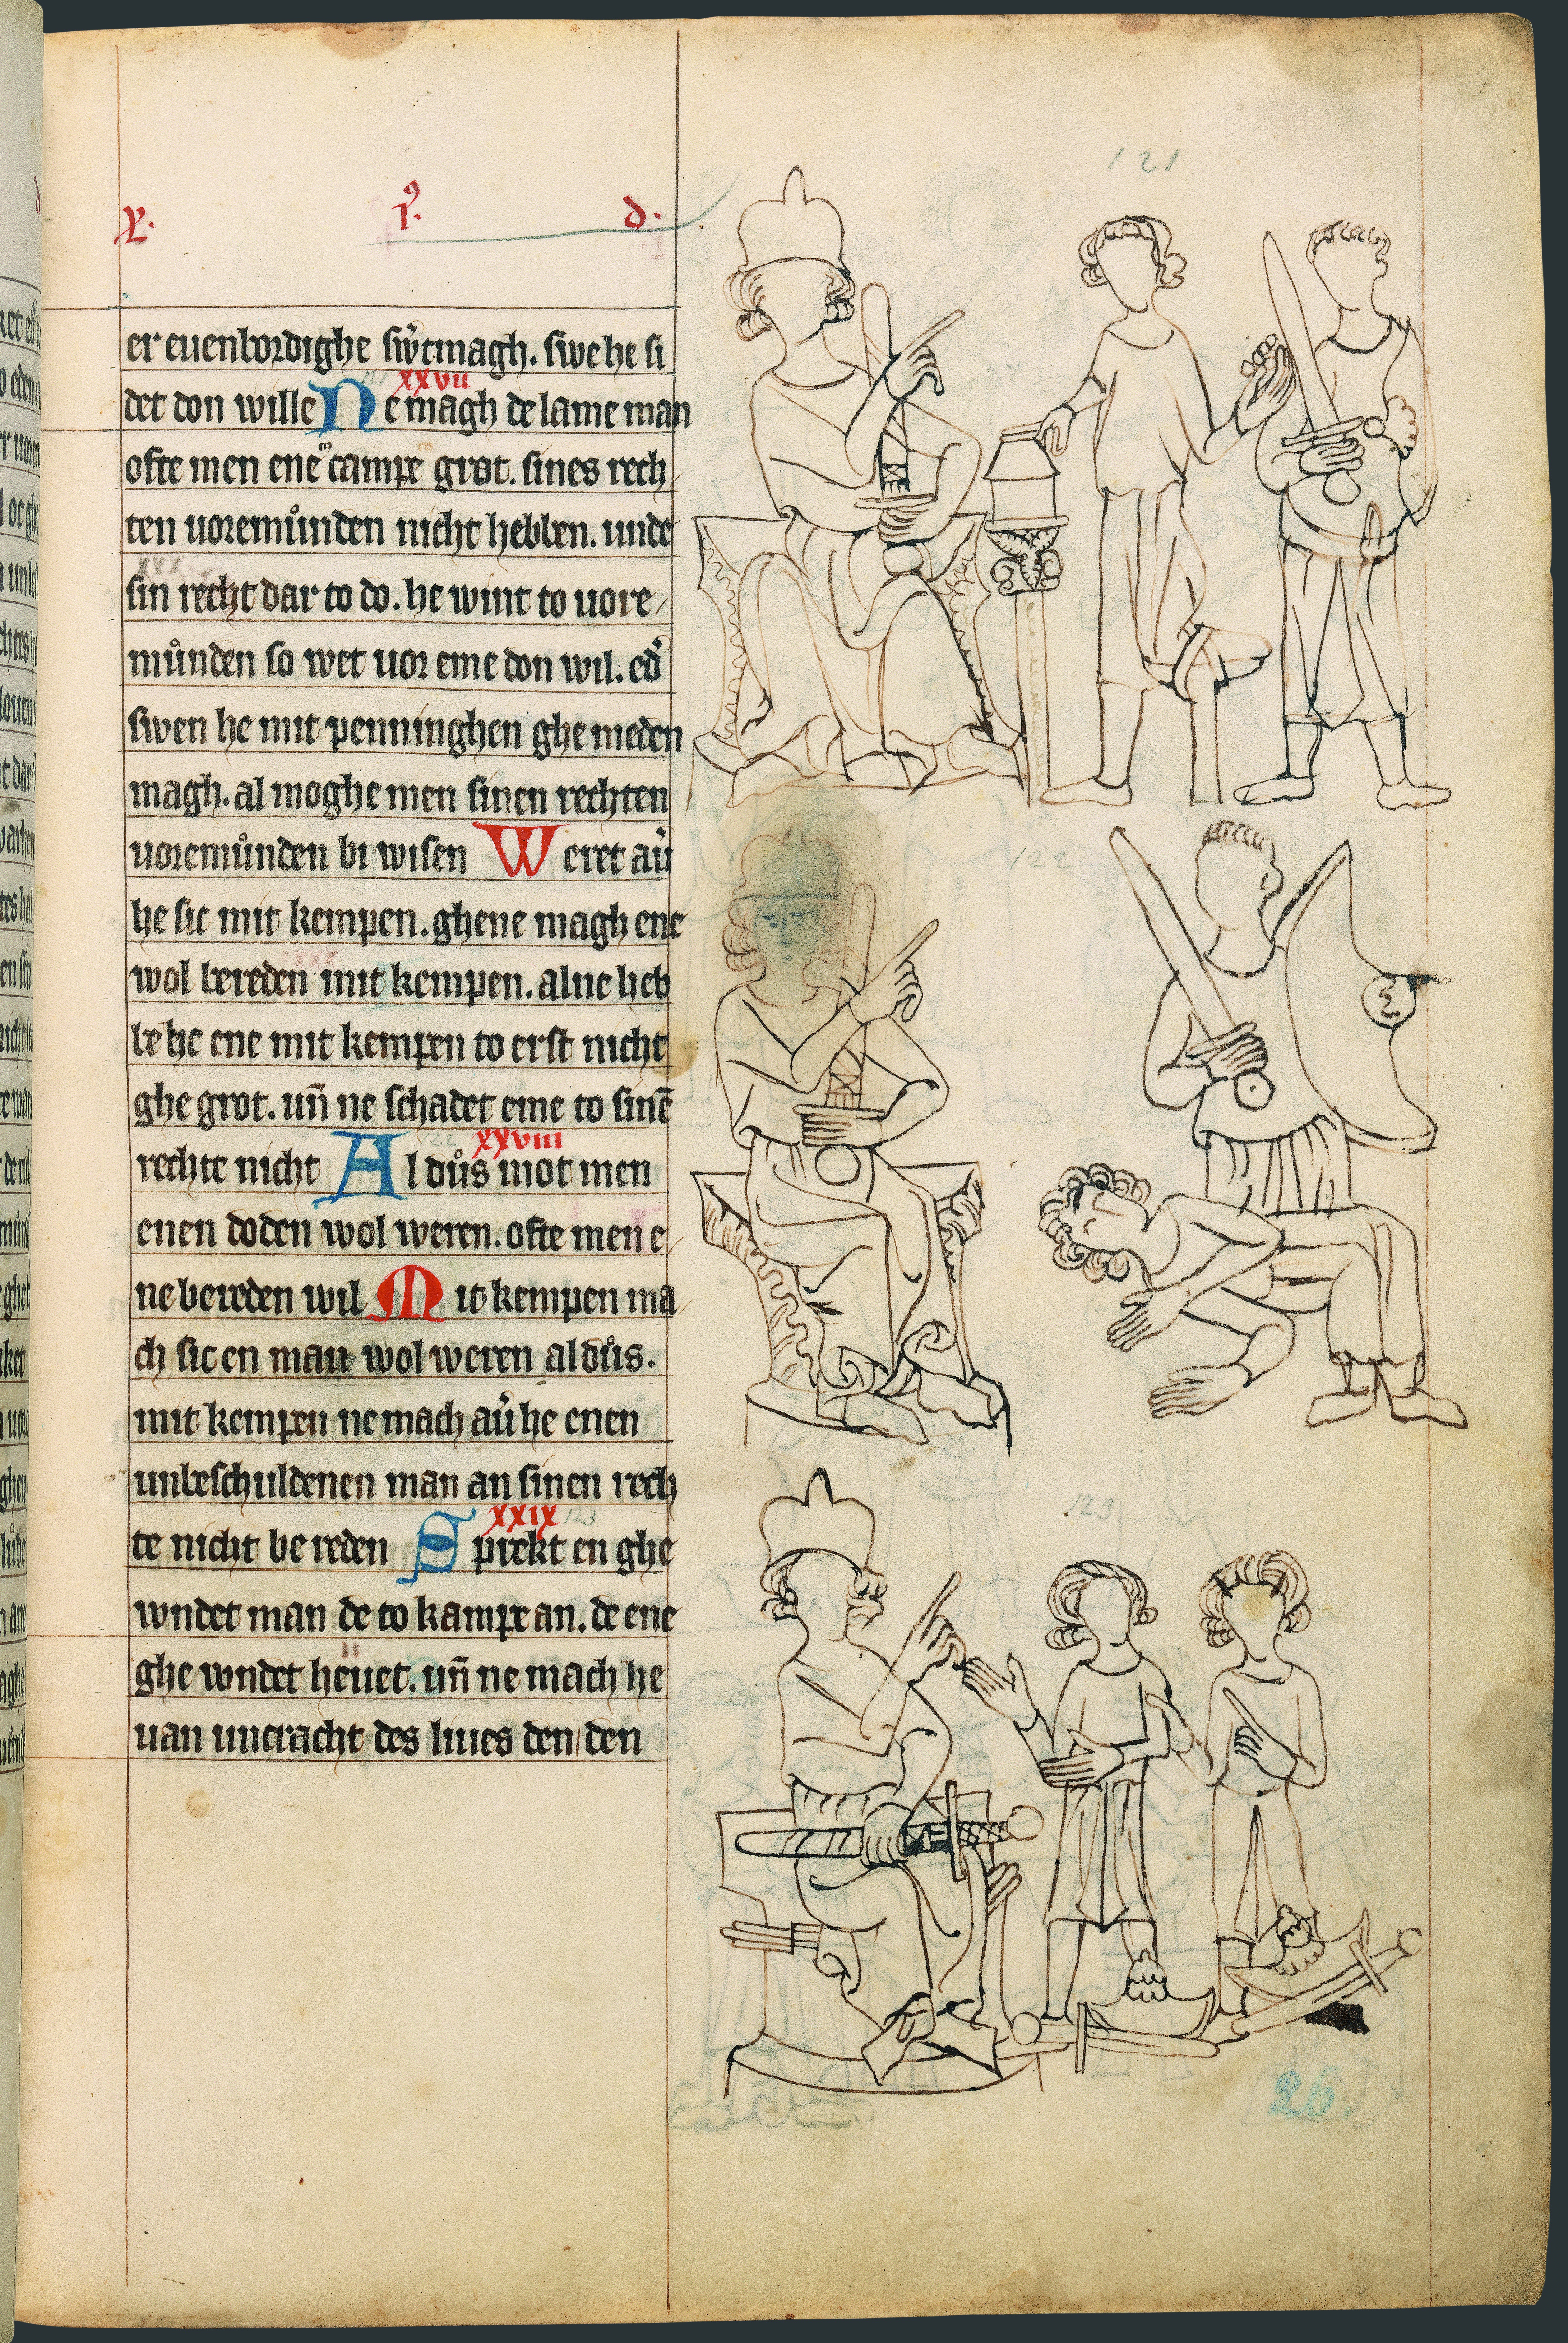 121
X. I⁹. d.
er euenbordighe swͤtmagh. swe he si
det don wille Ne magh de lame man
xxvii
ofte men enēcampe grot. sines rech
ten uoremuͦnden nicht hebben. unde
sin recht dar to do. he wint to uore
muͦnden so wet uor eme don wil. ed̉
swen he mit penninghen ghe meden
magh. al moghe men sinen rechten
uoremuͦnden bi wisen Weret au̓
122
he sic mit kempen. ghene magh ene
wol bereden mit kempen. alne heb
be he ene mit kempen to erst nicht
ghe grot. un̄ ne schadet eme to sinē
rechte nicht Al duͦs mot men
122 xxviii
enen doden wol weren. ofte men e
ne bereden wil Mit kempen ma
ch sic en man wol weren al duͦs.
mit kempen ne mach au̓ he enen
unbeschuldenen man an sinen rech
te nicht be reden Sprekt en ghe
xxix 123
123
wndet man de to kampe an. de ene
ghe wndet heuet. un̄ ne mach he
uan uncracht des liues den den
26